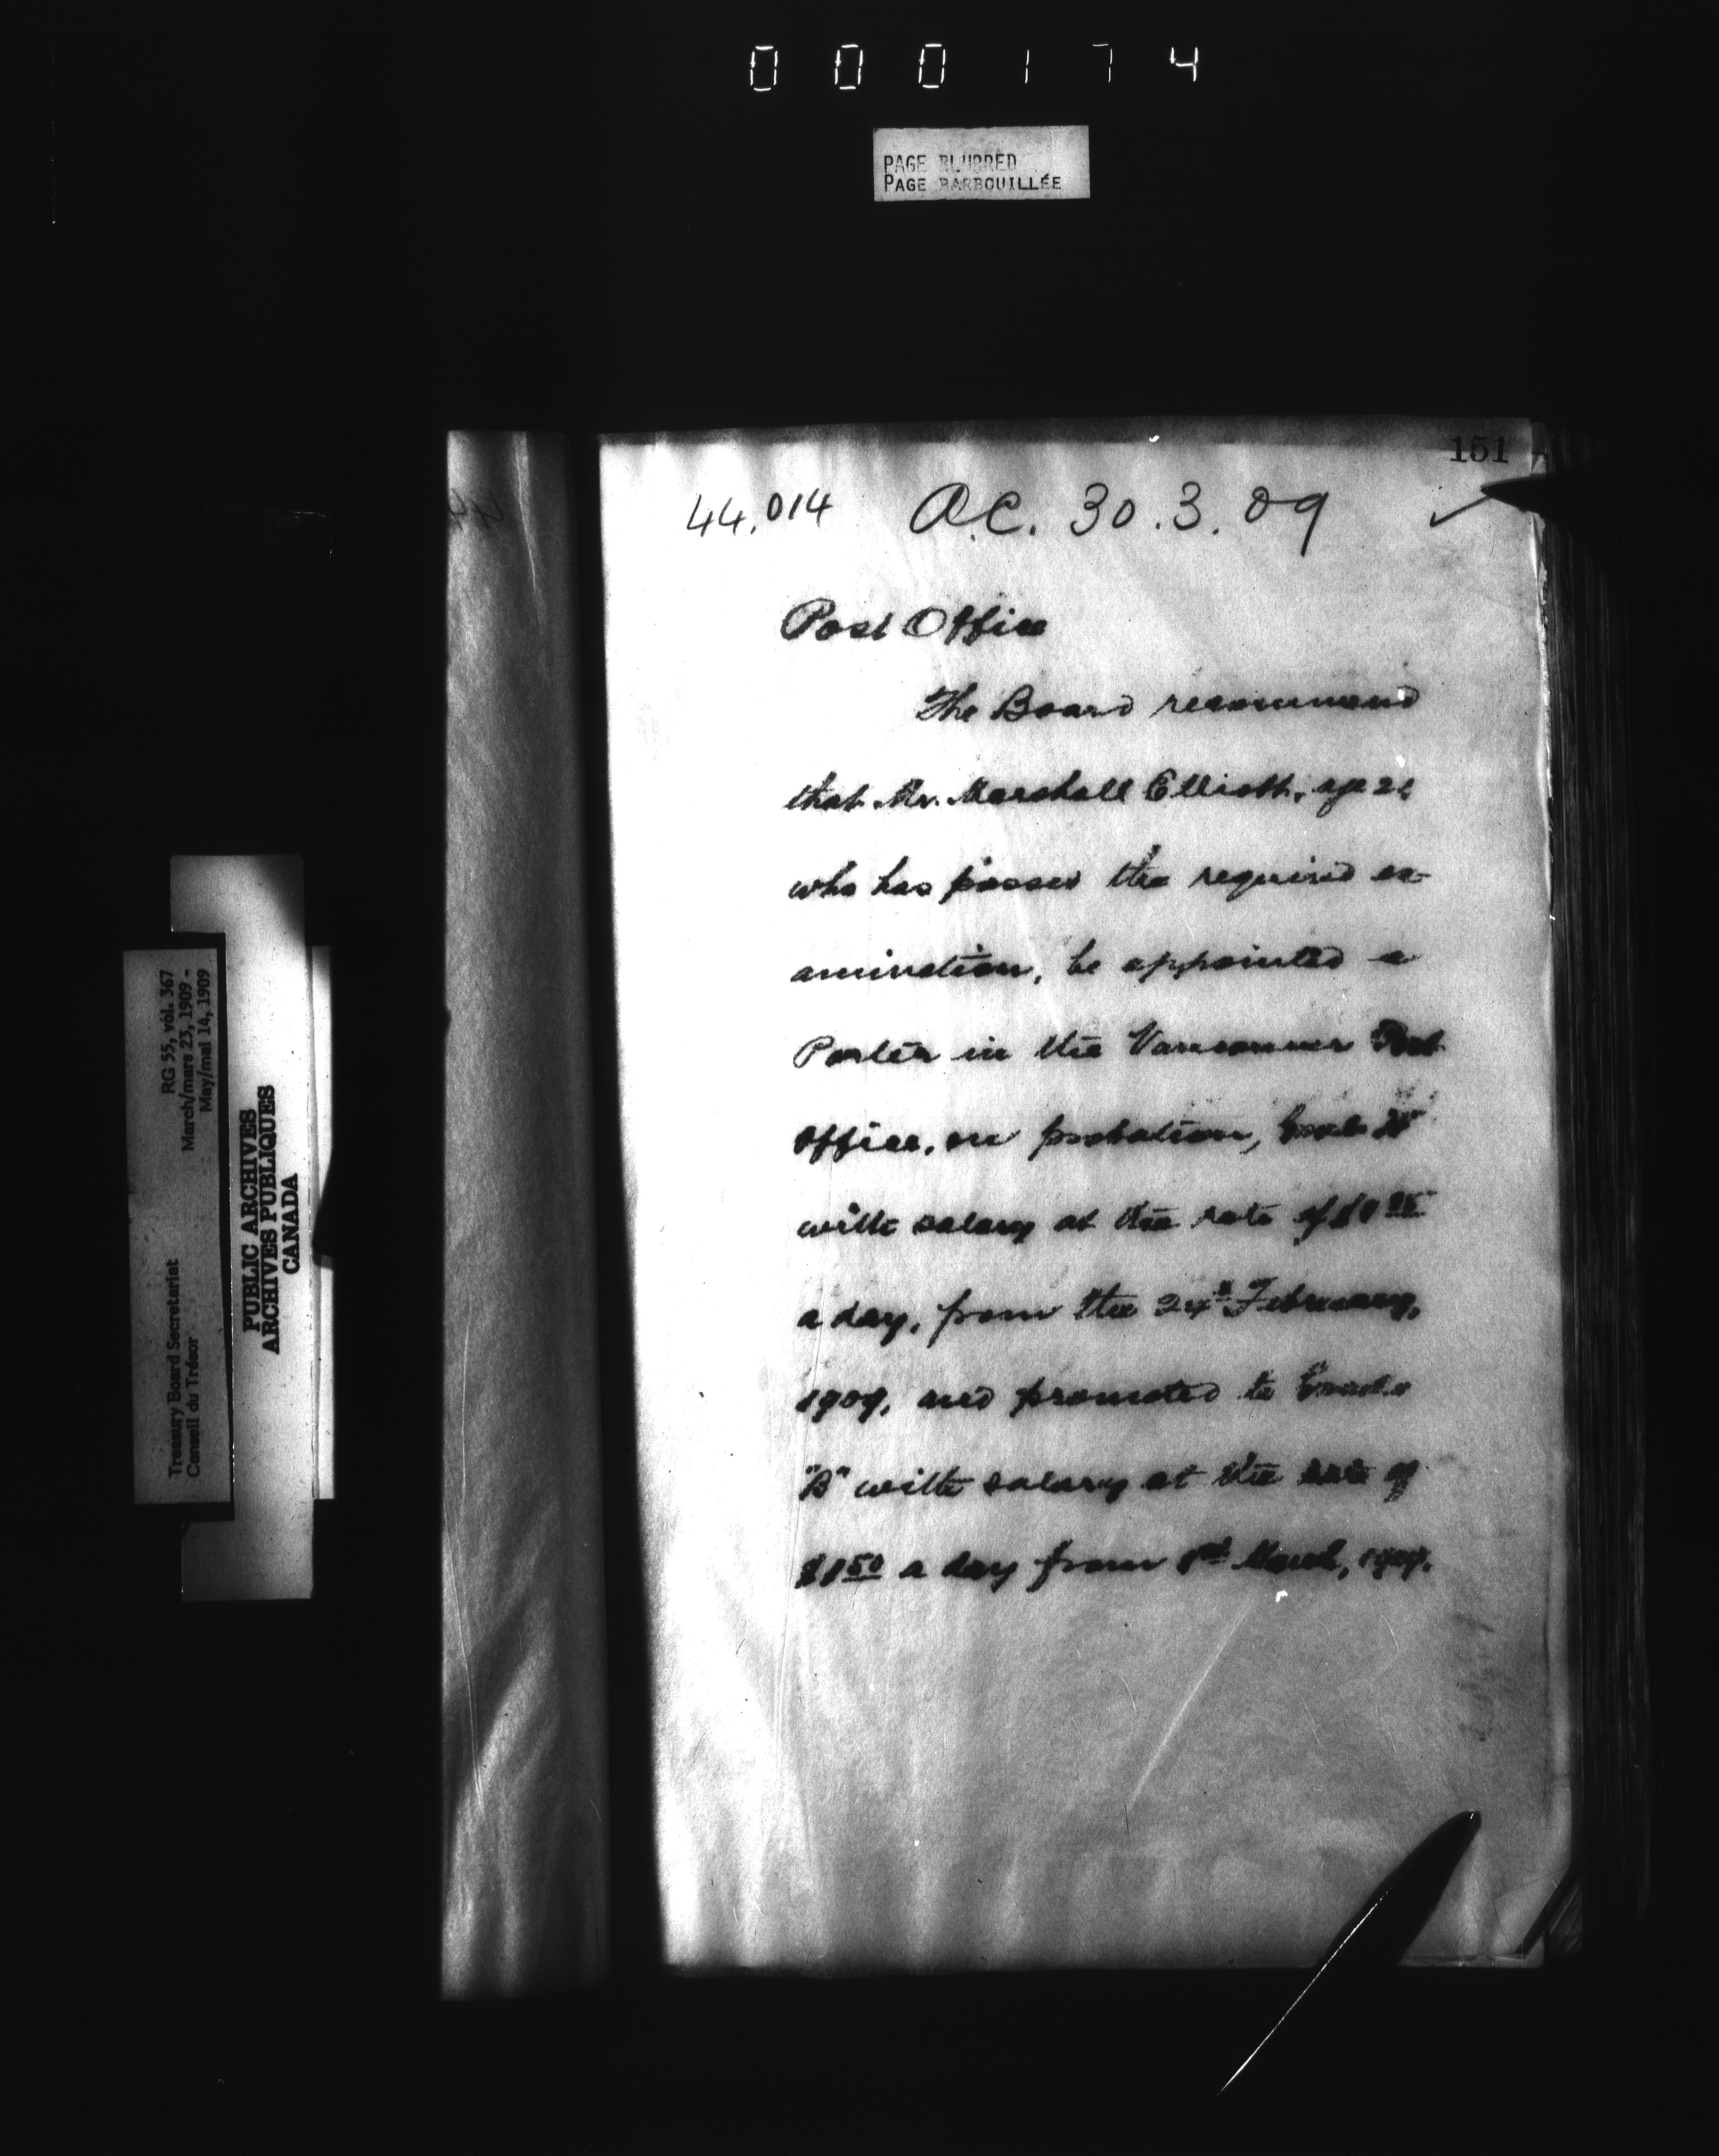 000174
PAGE BLURRED
PAGE BARBOUILLÉE
151
44.014 O.C. 30.3.09
Post Office
The Board recommend
that Mr. Marshall Elliott, age
who has passed the required ex-
amination, be appointed a
Porter in the Vancouver Post
Office, on probation,
with salary at the rate of
a day, from the 24th February,
1909, and promoted to Grade
"B" with salary at the rate of
$1 50 a day from 1st March, 1909.
RG 55, vol. 367
March/mars 23, 1909 -
May/mai 14, 1909
Treasury Board Secretariat
Conseil du Trésor
PUBLIC ARCHIVES
ARCHIVES PUBLIQUES
CANADA